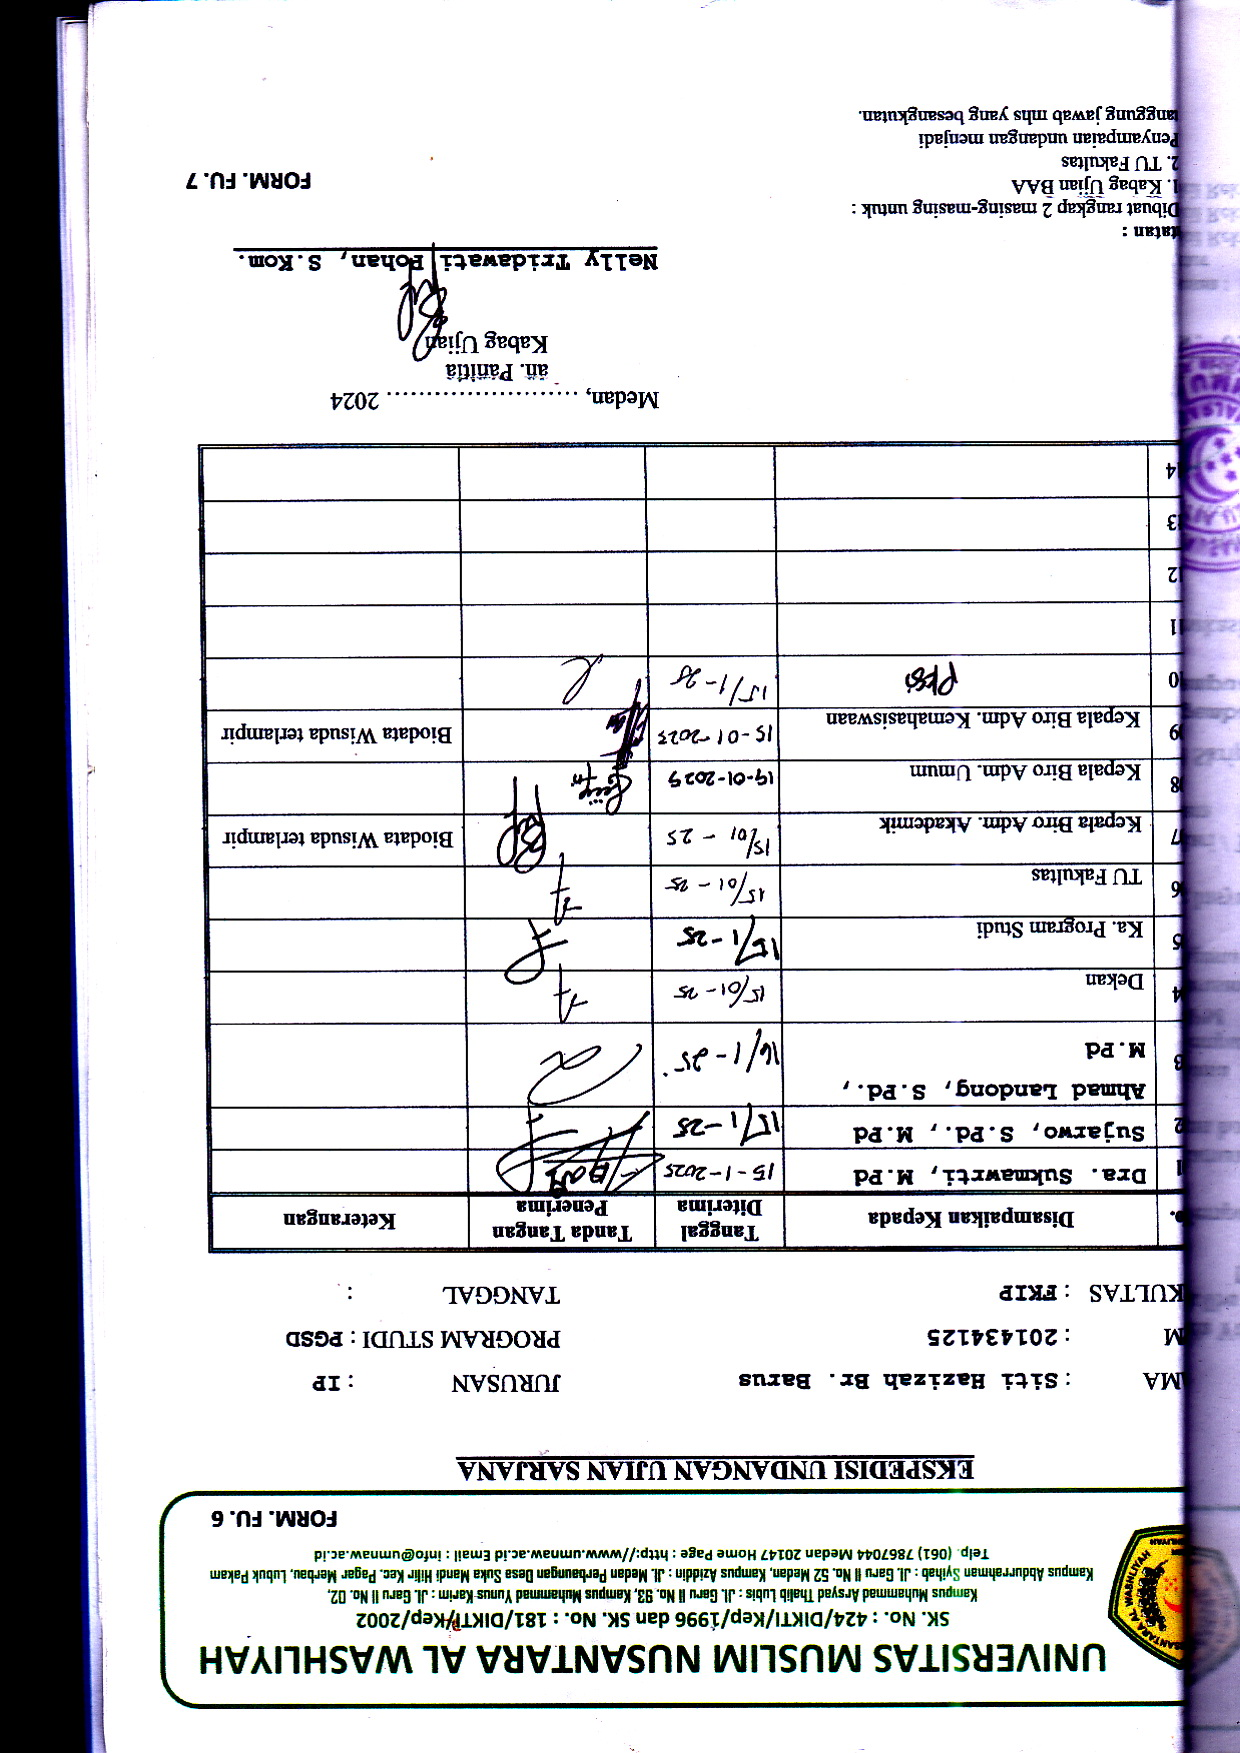 UNIVERSITAS MUSLIM NUSANTARA AL WASHLIYAH
SK. No. : 424/DIKTI/Kep/1996 dan SK. No. : 181/DIKTI/Kep/2002
Kampus Muhammad Arsyad Thalib Lubis : Jl. Garu II No. 93, Kampus Muhammad Yunus Karim : Jl. Garu II No. 02,
Kampus Abdurrahman Syihab : Jl. Garu II No. 52 Medan, Kampus Aziddin : Jl. Medan Perbaungan Desa Suka Mandi Hilir Kec. Pagar Merbau, Lubuk Pakam
Telp. (061) 7867044 Medan 20147 Home Page : http://www.umnaw.ac.id Email : info@umnaw.ac.id
FORM. FU. 6
EKSPEDISI UNDANGAN UJIAN SARJANA
MA : Siti Hazizah Br. Barus JURUSAN : IP
M : 201434125 PROGRAM STUDI : PGSD
KULTAS : FKIP TANGGAL :
o. Disampaikan Kepada Tanggal Diterima Tanda Tangan Penerima Keterangan
1 Dra. Sukmawrti, M.Pd 15-1-2025
2 Sujarwo, S.Pd., M.Pd 15/1-25
3 Ahmad Landong, S.Pd., M.Pd 16/1-25
4 Dekan 15/01-25
5 Ka. Program Studi 15/1-25
6 TU Fakultas 15/01-25
07 Kepala Biro Adm. Akademik 15/01-25 Biodata Wisuda terlampir
08 Kepala Biro Adm. Umum
09 Kepala Biro Adm. Kemahasiswaan 15-01-2025 Biodata Wisuda terlampir
10 15/1-25
11
12
13
14
Medan, ........................ 2024
an. Panitia
Kabag Ujian
Nelly Tridawati Pohan, S.Kom.
tatan :
Dibuat rangkap 2 masing-masing untuk :
1. Kabag Ujian BAA
2. TU Fakultas
Penyampaian undangan menjadi
tanggung jawab mhs yang besangkutan.
FORM. FU. 7